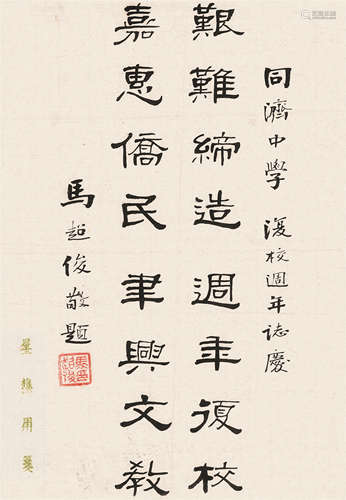 同濟中學 復校週年誌慶
艱難締造週年復校
嘉惠僑民聿興文教
馬超俊敬題
星樵用箋